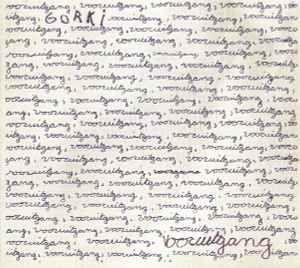 vooruitgang, vooruitgang, vooruitgang, vooruitgang,
GORKI
vooruitgang, vooruitgang, vooruitgang,
vooruitgang, vooruitgang, vooruitgang, vooruitgang,
gang, vooruitgang, vooruitgang, vooruitgang,
vooruitgang, vooruitgang, vooruitgang, vooruitgang,
gang, vooruitgang, vooruitgang, vooruitgang,
vooruitgang, vooruitgang, vooruitgang, vooruitgang,
vooruitgang, vooruitgang, vooruitgang, vooruitgang,
vooruitgang, vooruitgang, vooruitgang, vooruitgang,
ang, vooruitgang, vooruitgang, vooruitgang,
vooruitgang, vooruitgang, vooruitgang, vooruitgang,
vooruitgang, vooruitgang, vooruitgang, vooruitgang,
vooruitgang, vooruitgang, vooruitgang, vooruitgang,
gang, vooruitgang, vooruitgang, vooruitgang,
vooruitgang, vooruitgang, vooruitgang, vooruitgang,
vooruitgang, vooruitgang, vooruitgang, vooruitgang,
vooruitgang, vooruitgang, vooruitgang, vooruitgang,
vooruitgang, vooruitgang, vooruitgang, vooruitgang,
ang, vooruitgang, vooruitgang, vooruitgang,
vooruitgang, vooruitgang,
vooruitgang